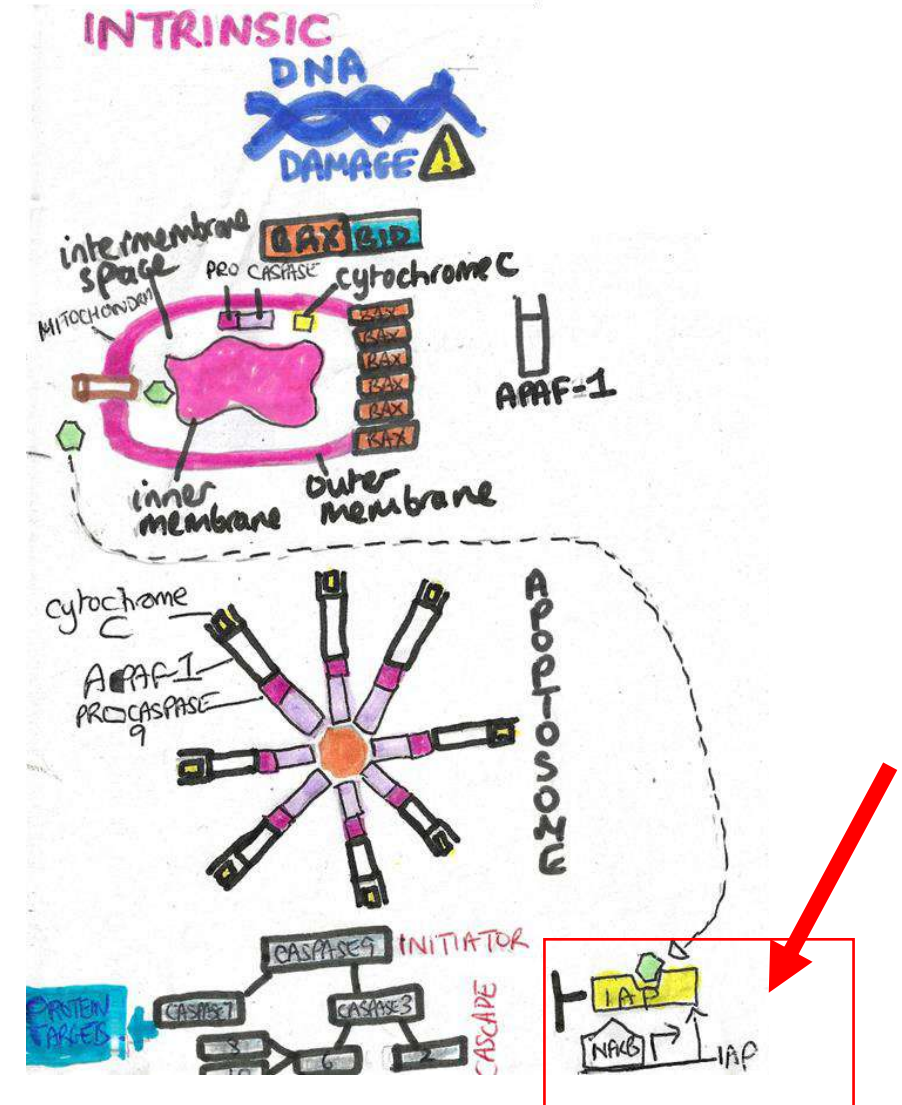 INTRINSIC
DNA
DAMAGE
!
BAX BID
intermembrane
space
PRO CASPASE
cytochrome C
MITOCHONDRIA
BAX
BAX
BAX
BAX
BAX
BAX
APAF-1
inner
membrane
outer
membrane
cytochrome
C
APAF-1
PROCASPASE
9
APOPTOSOME
CASPASE9
INITIATOR
CASPASE7
CASPASE3
CASCADE
PROTEIN
TARGETS
8
6
2
IAP
NFKB
IAP